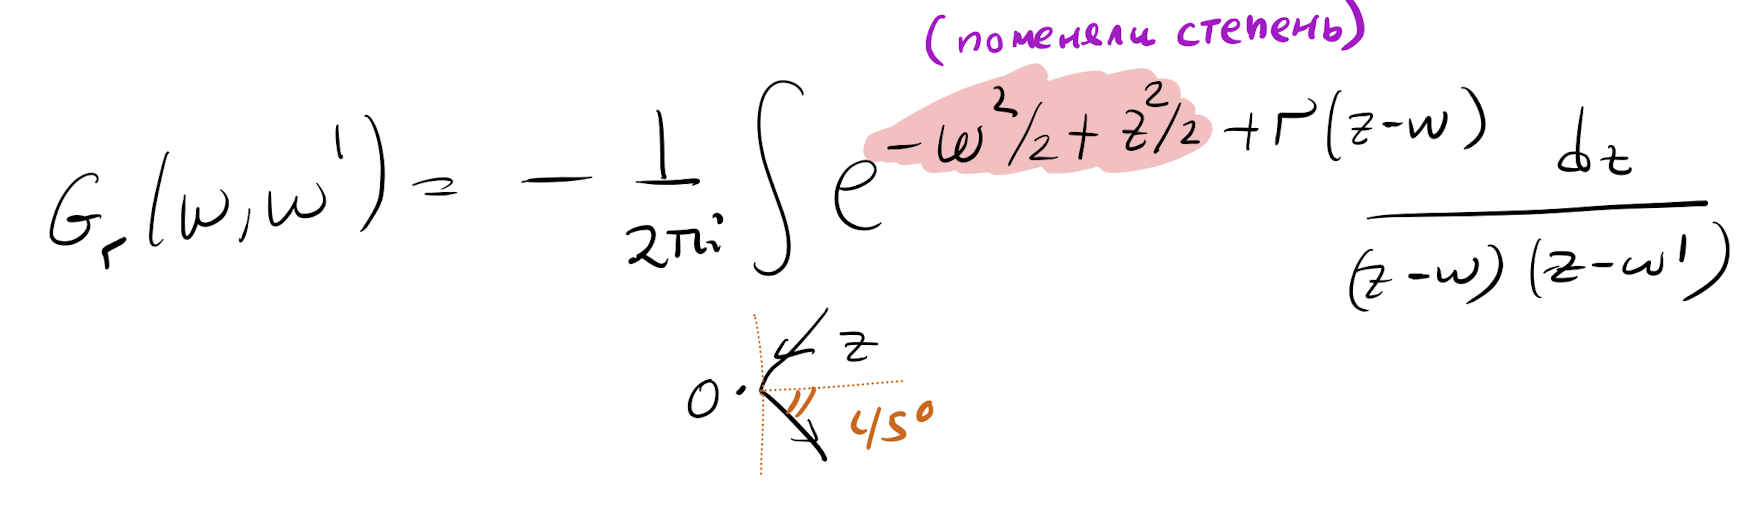 (поменяли степень)
G_r(w,w') = - 1/2πi ∫ e^{-w²/2 + z²/2 + r(z-w)} dz/(z-w)(z-w')
z
0
45°